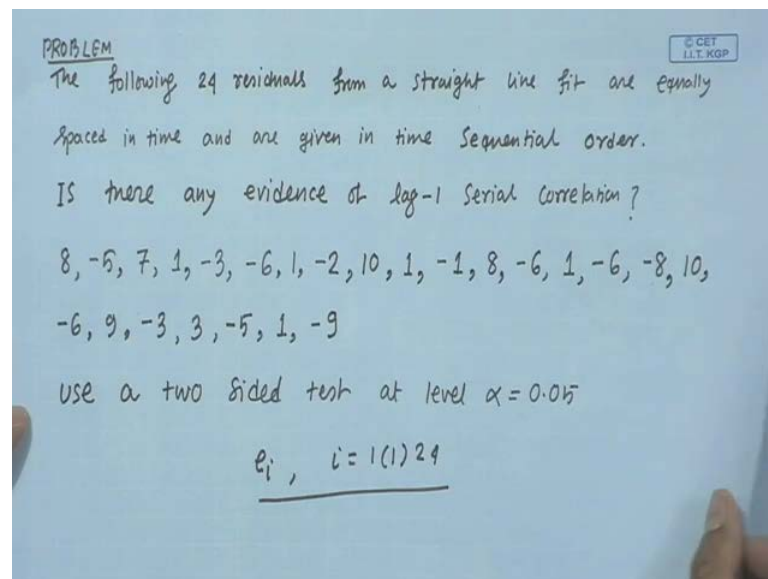 PROBLEM
© CET
I.I.T. KGP
The following 24 residuals from a straight line fit are equally
spaced in time and are given in time sequential order.
Is there any evidence of lag-1 serial correlation?
8, -5, 7, 1, -3, -6, 1, -2, 10, 1, -1, 8, -6, 1, -6, -8, 10,
-6, 9, -3, 3, -5, 1, -9
use a two sided test at level α = 0.05
ei, i = 1(1) 24